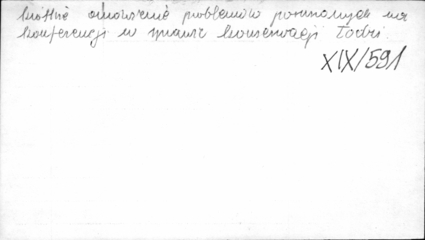 krótkie omówienie problemów poruszanych na
konferencji w sprawie konserwacji Łodzi.
XIX/591